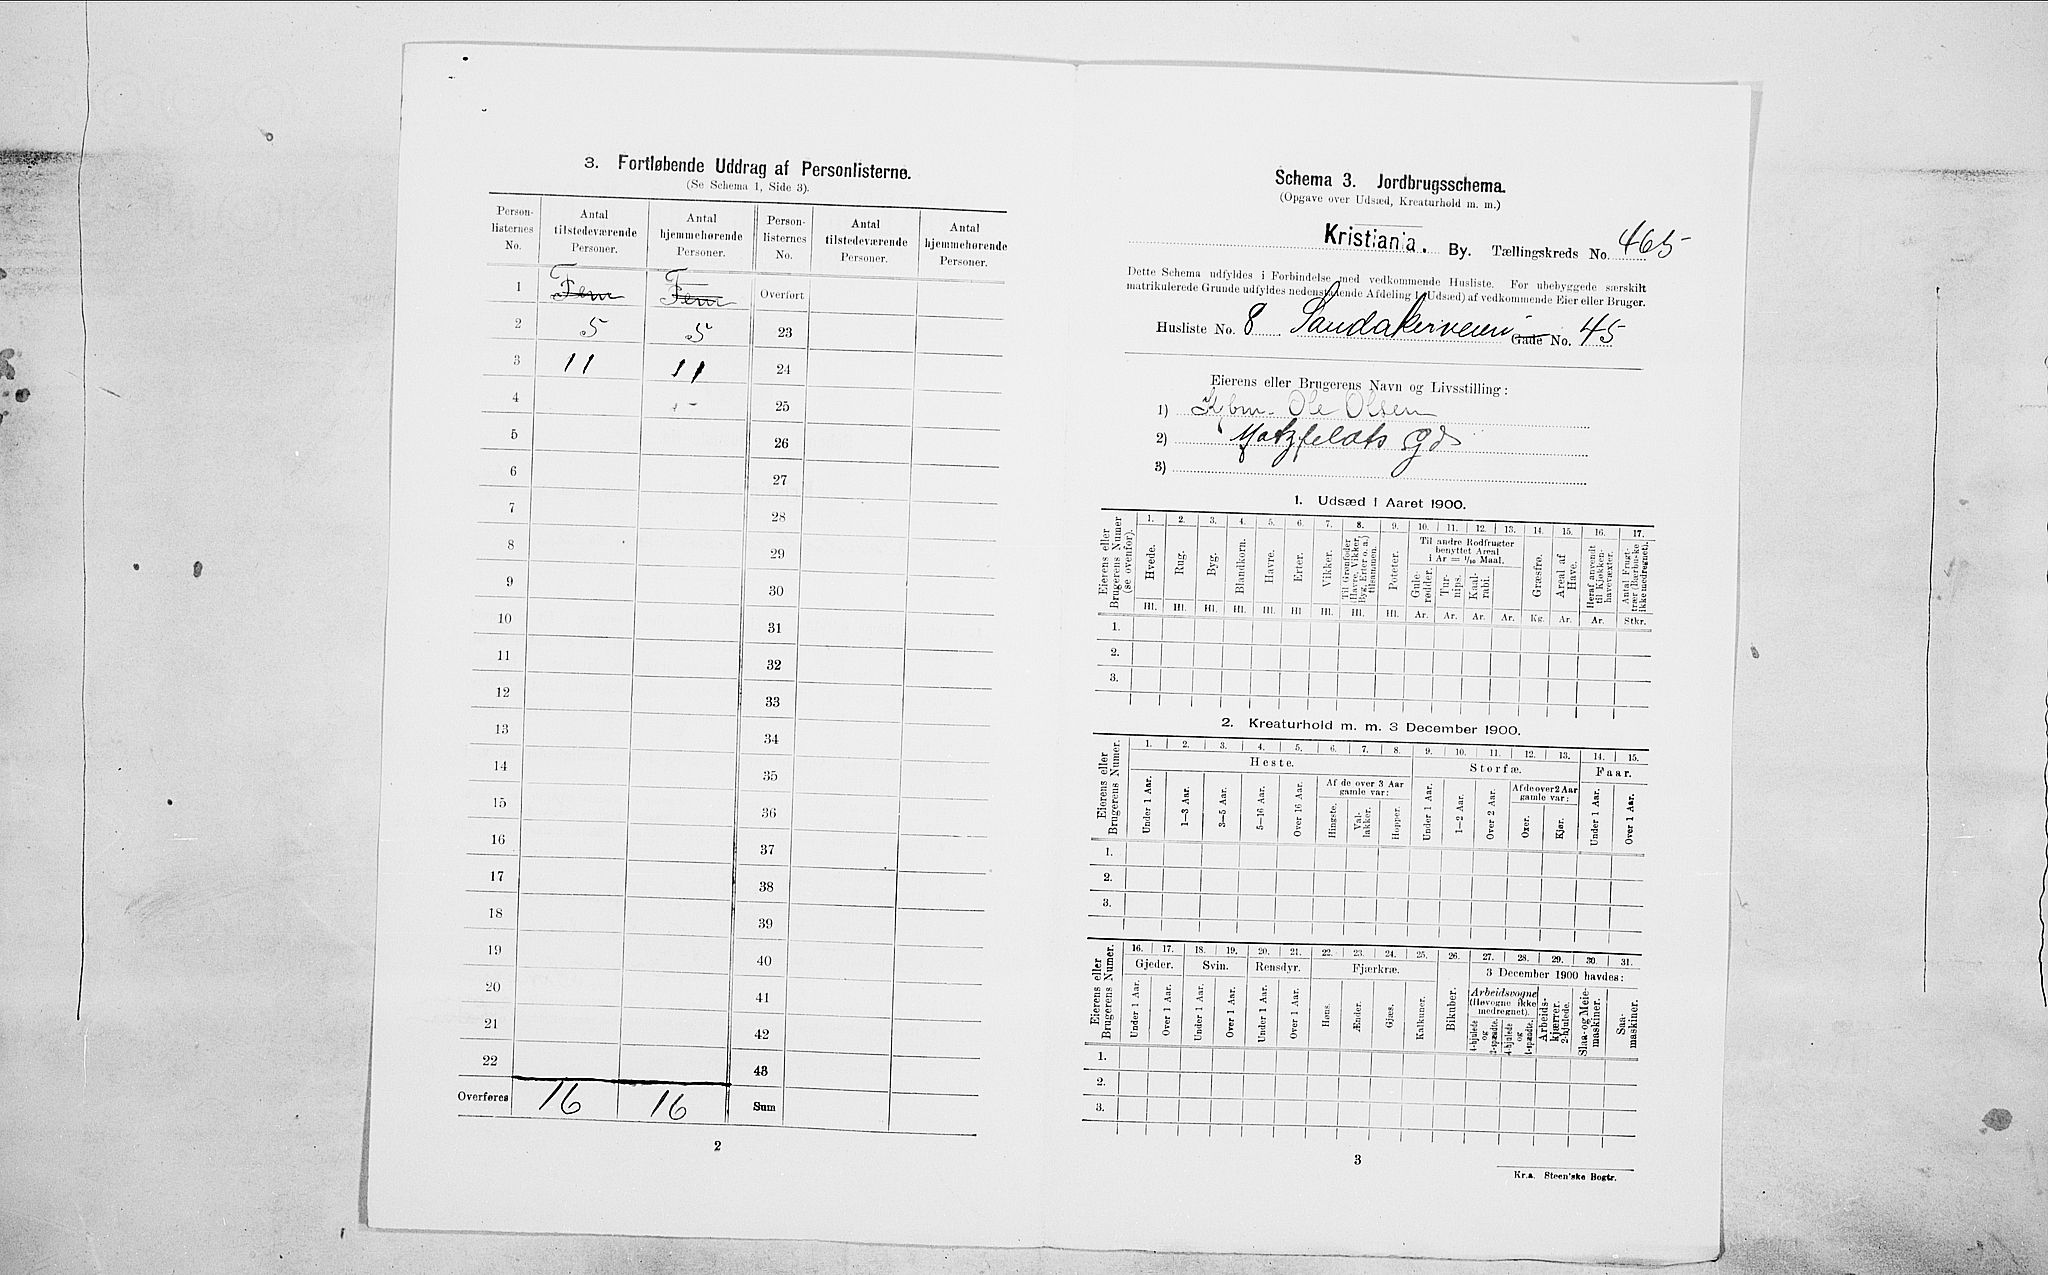 3. Fortløbende Uddrag af Personlisterne.
(Se Schema 1, Side 3).
Person-listernes No. Antal tilstedeværende Personer. Antal hjemmehørende Personer. Person-listernes No. Antal tilstedeværende Personer. Antal hjemmehørende Personer.
1 Fem Fem Overført
2 5 5 23
3 11 11 24
4 25
5 26
6 27
7 28
8 29
9 30
10 31
11 32
12 33
13 34
14 35
15 36
16 37
17 38
18 39
19 40
20 41
21 42
22 43
Overføres 16 16 Sum
2
Schema 3. Jordbrugsschema.
(Opgave over Udsæd, Kreaturhold m. m.)
Kristiania. By. Tællingskreds No. 465
Dette Schema udfyldes i Forbindelse med vedkommende Husliste. For ubebyggede særskilt
matrikulerede Grunde udfyldes nedenstaaende Afdeling 1 (Udsæd) af vedkommende Eier eller Bruger.
Husliste No. 8 Sandakerveien Gade No. 45
Eierens eller Brugerens Navn og Livsstilling:
1) Kjbm. Ole Olsen
2)
3)
1. Udsæd i Aaret 1900.
Eierens eller Brugerens Numer (se ovenfor).
1. 2. 3. 4. 5. 6. 7. 8. 9. 10. 11. 12. 13. 14. 15. 16. 17.
Hvede. Rug. Byg. Blandkorn. Havre. Erter. Vikker. Til Grønfoder (Havre, Vikker, Byg, Erter o. a.) tilsammen. Poteter.
Til andre Rodfrugter benyttet Areal i Ar = 1/10 Maal.
Gule-rødder. Tur-nips. Kaal-rabi. Græsfrø. Areal af Have. Heraf anvendt til Kjøkken-havevæxter. Antal Frugt-trær (Bærbuske ikke medregnet).
Hl. Hl. Hl. Hl. Hl. Hl. Hl. Hl. Hl. Ar. Ar. Ar. Ar. Kg. Ar. Ar. Stkr.
1.
2.
3.
2. Kreaturhold m. m. 3 December 1900.
Eierens eller Brugerens Numer.
1. 2. 3. 4. 5. 6. 7. 8. 9. 10. 11. 12. 13. 14. 15.
Heste. Storfæ. Faar.
Af de over 3 Aar gamle var: Af de over 2 Aar gamle var:
Under 1 Aar. 1—3 Aar. 3—5 Aar. 5—16 Aar. Over 16 Aar. Hingste. Val-lakker. Hopper. Under 1 Aar. 1—2 Aar. Over 2 Aar. Oxer. Kjør. Under 1 Aar. Over 1 Aar.
1.
2.
3.
Eierens eller Brugerens Numer.
16. 17. 18. 19. 20. 21. 22. 23. 24. 25. 26. 27. 28. 29. 30. 31.
Gjeder. Svin. Rensdyr. Fjærkræ. 3 December 1900 havdes:
Under 1 Aar. Over 1 Aar. Under 1 Aar. Over 1 Aar. Under 1 Aar. Over 1 Aar. Høns. Ænder. Gjæs. Kalkuner. Bikuber.
Arbeidsvogne (Høvogne ikke medregnet).
4-hjulede og 2-spændte. 4-hjulede og 1-spændte. Arbeids-kjærrer. 2-hjulede. Slaa- og Meie-maskiner. Saa-maskiner.
1.
2.
3.
3
Kr.a. Steen'ske Bogtr.